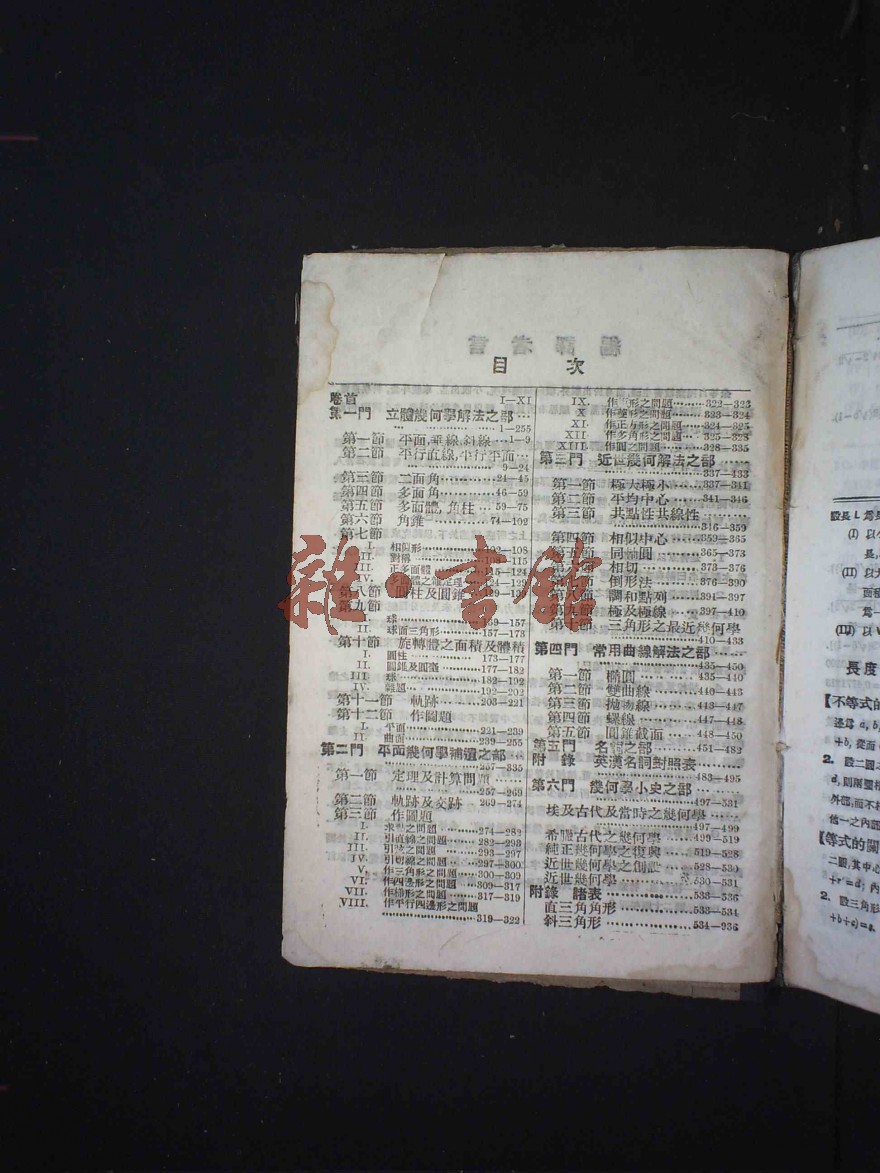 目 次
卷首 I—XI
第一門 立體幾何學解法之部…
……1—255
第一節 平面,垂線,斜線…1—9
第二節 平行直線,平行平面…
……9—24
第三節 二面角……24—45
第四節 多面角……46—59
第五節 多面體,角柱…59—75
第六節 角錐……74—102
第七節
I. 相似形……102—108
II. 對稱……115
III. 正多面體……115—124
IV. 多面體之雜定理…124—129
第八節 圓柱及圓錐
第九節
I. 球……157
II. 球面三角形……157—173
第十節 旋轉體之面積及體積
I. 圓柱……173—177
II. 圓錐及圓臺……177—182
III. 球……182—192
IV. 雜題……192—202
第十一節 軌跡……203—221
第十二節 作圖題
I. 平面……221—239
II. 曲面……239—255
第二門 平面幾何學補遺之部…
……257—335
第一節 定理及計算問題…
……257—269
第二節 軌跡及交跡…269—274
第三節 作圖題
I. 求點之問題……274—282
II. 引直線之問題……282—293
III. 引圓之問題……293—297
IV. 引切線之問題……297—300
V. 作三角形之問題…300—309
VI. 作四邊形之問題…309—317
VII. 作梯形之問題……317—319
VIII. 作平行四邊形之問題
……319—322
IX. 作形之問題……322—323
X 作菱形之問題……323—324
XI. 作正方形之問題…324—325
XII 作多角形之問題…325—328
XIII. 作圓之問題……328—335
第三門 近世幾何解法之部……
……337—433
第一節 極大極小……337—341
第二節 平均中心……341—346
第三節 共點性共線性……
……316—359
第四節 相似中心……359—365
第五節 同軸圓……365—373
相切……373—376
倒形法……376—390
調和點列……391—397
極及極線……397—410
三角形之最近幾何學
……410—433
第四門 常用曲線解法之部……
……435—450
第一節 橢圓……435—440
第二節 雙曲線……440—443
第三節 拋物線……443—447
第四節 螺線……447—448
第五節 圓錐截面……448—450
第五門 名詞之部……451—482
附 錄 英漢名詞對照表……
……483—495
第六門 幾何學小史之部……
……497—531
埃及古代及當時之幾何學…
……497—499
希臘古代之幾何學…499—519
純正幾何學之復興…519—528
近世幾何學之創設…528—530
近世幾何學……530—531
附錄 諸表……533—536
直三角角形……533—534
斜三角形……534—936
雜·書館
設長 L 爲
(I) 以
長,
(II) 以
面積
爲一
(III) 以 V
長度
【不等式的
2. 設二圓之
d,則兩圓相
外部,而不
他一之內部
【等式的關
二圓,其中心
+r'=d; 內
2. 設三角形
+b+c)=s.